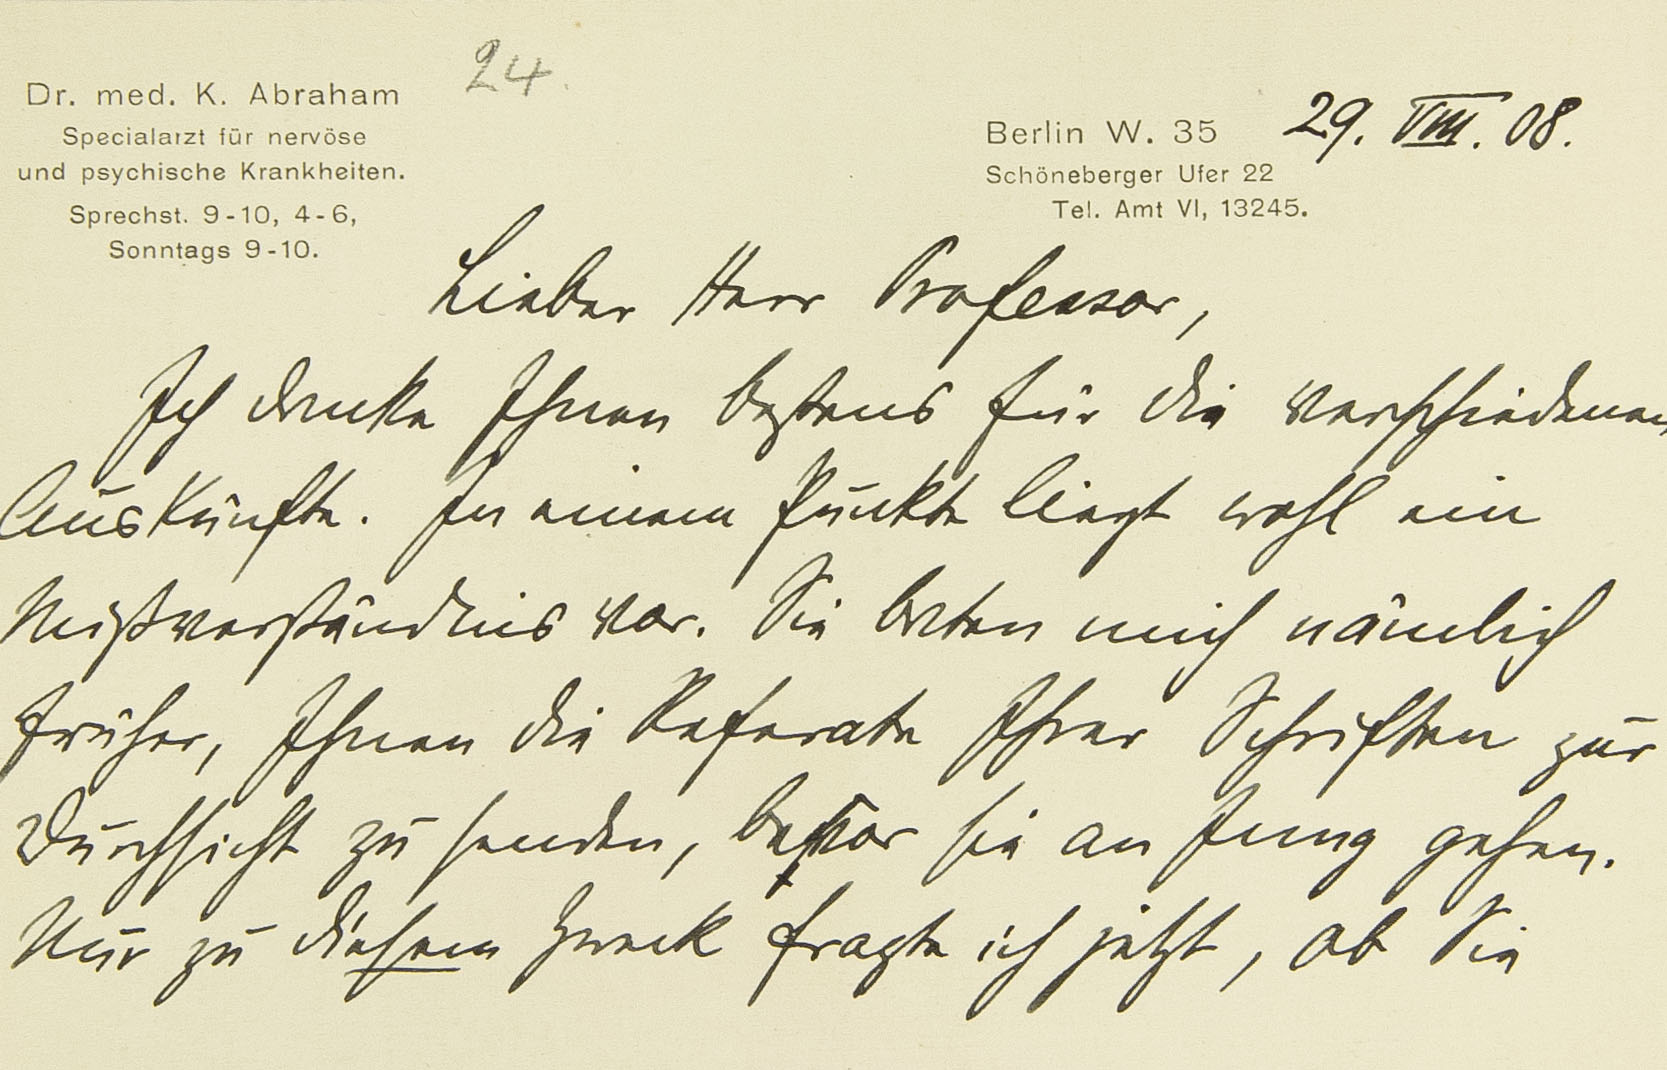 24.
Dr. med. K. Abraham
Specialarzt für nervöse
und psychische Krankheiten.
Sprechst. 9-10, 4-6,
Sonntags 9-10.
Berlin W. 35 29. VIII. 08.
Schöneberger Ufer 22
Tel. Amt VI, 13245.
Lieber Herr Professor,
Ich danke Ihnen bestens für die verschiedenen
Auskünfte. In einem Punkte liegt wohl ein
Mißverständnis vor. Sie baten mich nämlich
früher, Ihnen die Referate Ihrer Schriften zur
Durchsicht zu senden, bevor sie an Jung gehen.
Nur zu diesem Zweck fragte ich jetzt, ob Sie